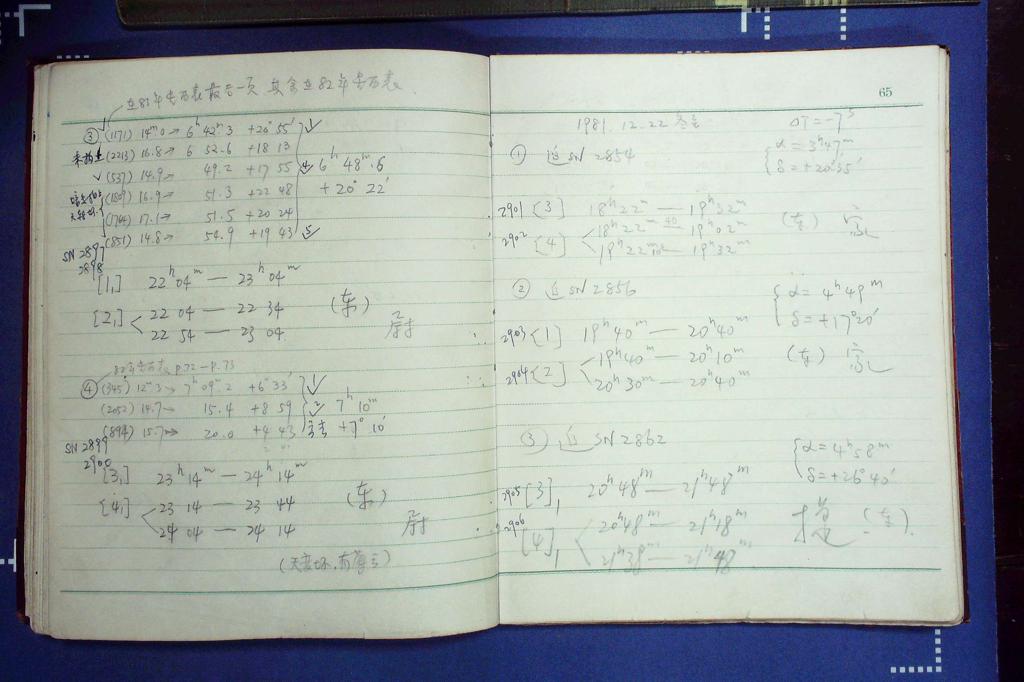 在81年书历表最后一页 其余在82年书历表
③ (1171) 14ᵐ.0 → 6ʰ 42ᵐ.3 +20° 55′
(2213) 16.8 → 6 52.6 +18 13
(537) 14.9 → 49.2 +17 55
6ʰ 48ᵐ.6
(1809) 16.9 → 51.3 +22 48
+20° 22′
(1764) 17.1 → 51.5 +20 24
(851) 14.8 → 54.9 +19 43
SN 2897
2898
[1,] 22ʰ 04ᵐ — 23ʰ 04ᵐ
[2,] 22 04 — 22 34 (东)
22 54 — 23 04
82年书历表 p.72 — p.73
④ (345) 12ᵐ.3 → 7ʰ 09ᵐ.2 +6° 33′
(2052) 14.7 → 15.4 +8 59
7ʰ 10ᵐ
(894) 15.7 → 20.0 +4 43
+7° 10′
SN 2899
2900
[3,] 23ʰ 14ᵐ — 24ʰ 14ᵐ
[4,] 23 14 — 23 44 (东)
24 04 — 24 14
65
1981.12.22 ΔT = -7ˢ
① 近 SN 2854
α = 3ʰ47ᵐ
δ = +20°55′
2901 [3] 18ʰ22ᵐ — 19ʰ32ᵐ
2902 [4] 18ʰ22ᵐ — 19ʰ02ᵐ (东)
19ʰ22ᵐ — 19ʰ32ᵐ
② 近 SN 2856
α = 4ʰ49ᵐ
δ = +17°20′
2903 [1] 19ʰ40ᵐ — 20ʰ40ᵐ
2904 [2] 19ʰ40ᵐ — 20ʰ10ᵐ (东)
20ʰ30ᵐ — 20ʰ40ᵐ
③ 近 SN 2862
α = 4ʰ58ᵐ
δ = +26°40′
2905 [3], 20ʰ48ᵐ — 21ʰ48ᵐ
2906 [4], 20ʰ48ᵐ — 21ʰ18ᵐ (东)
21ʰ38ᵐ — 21ʰ48ᵐ